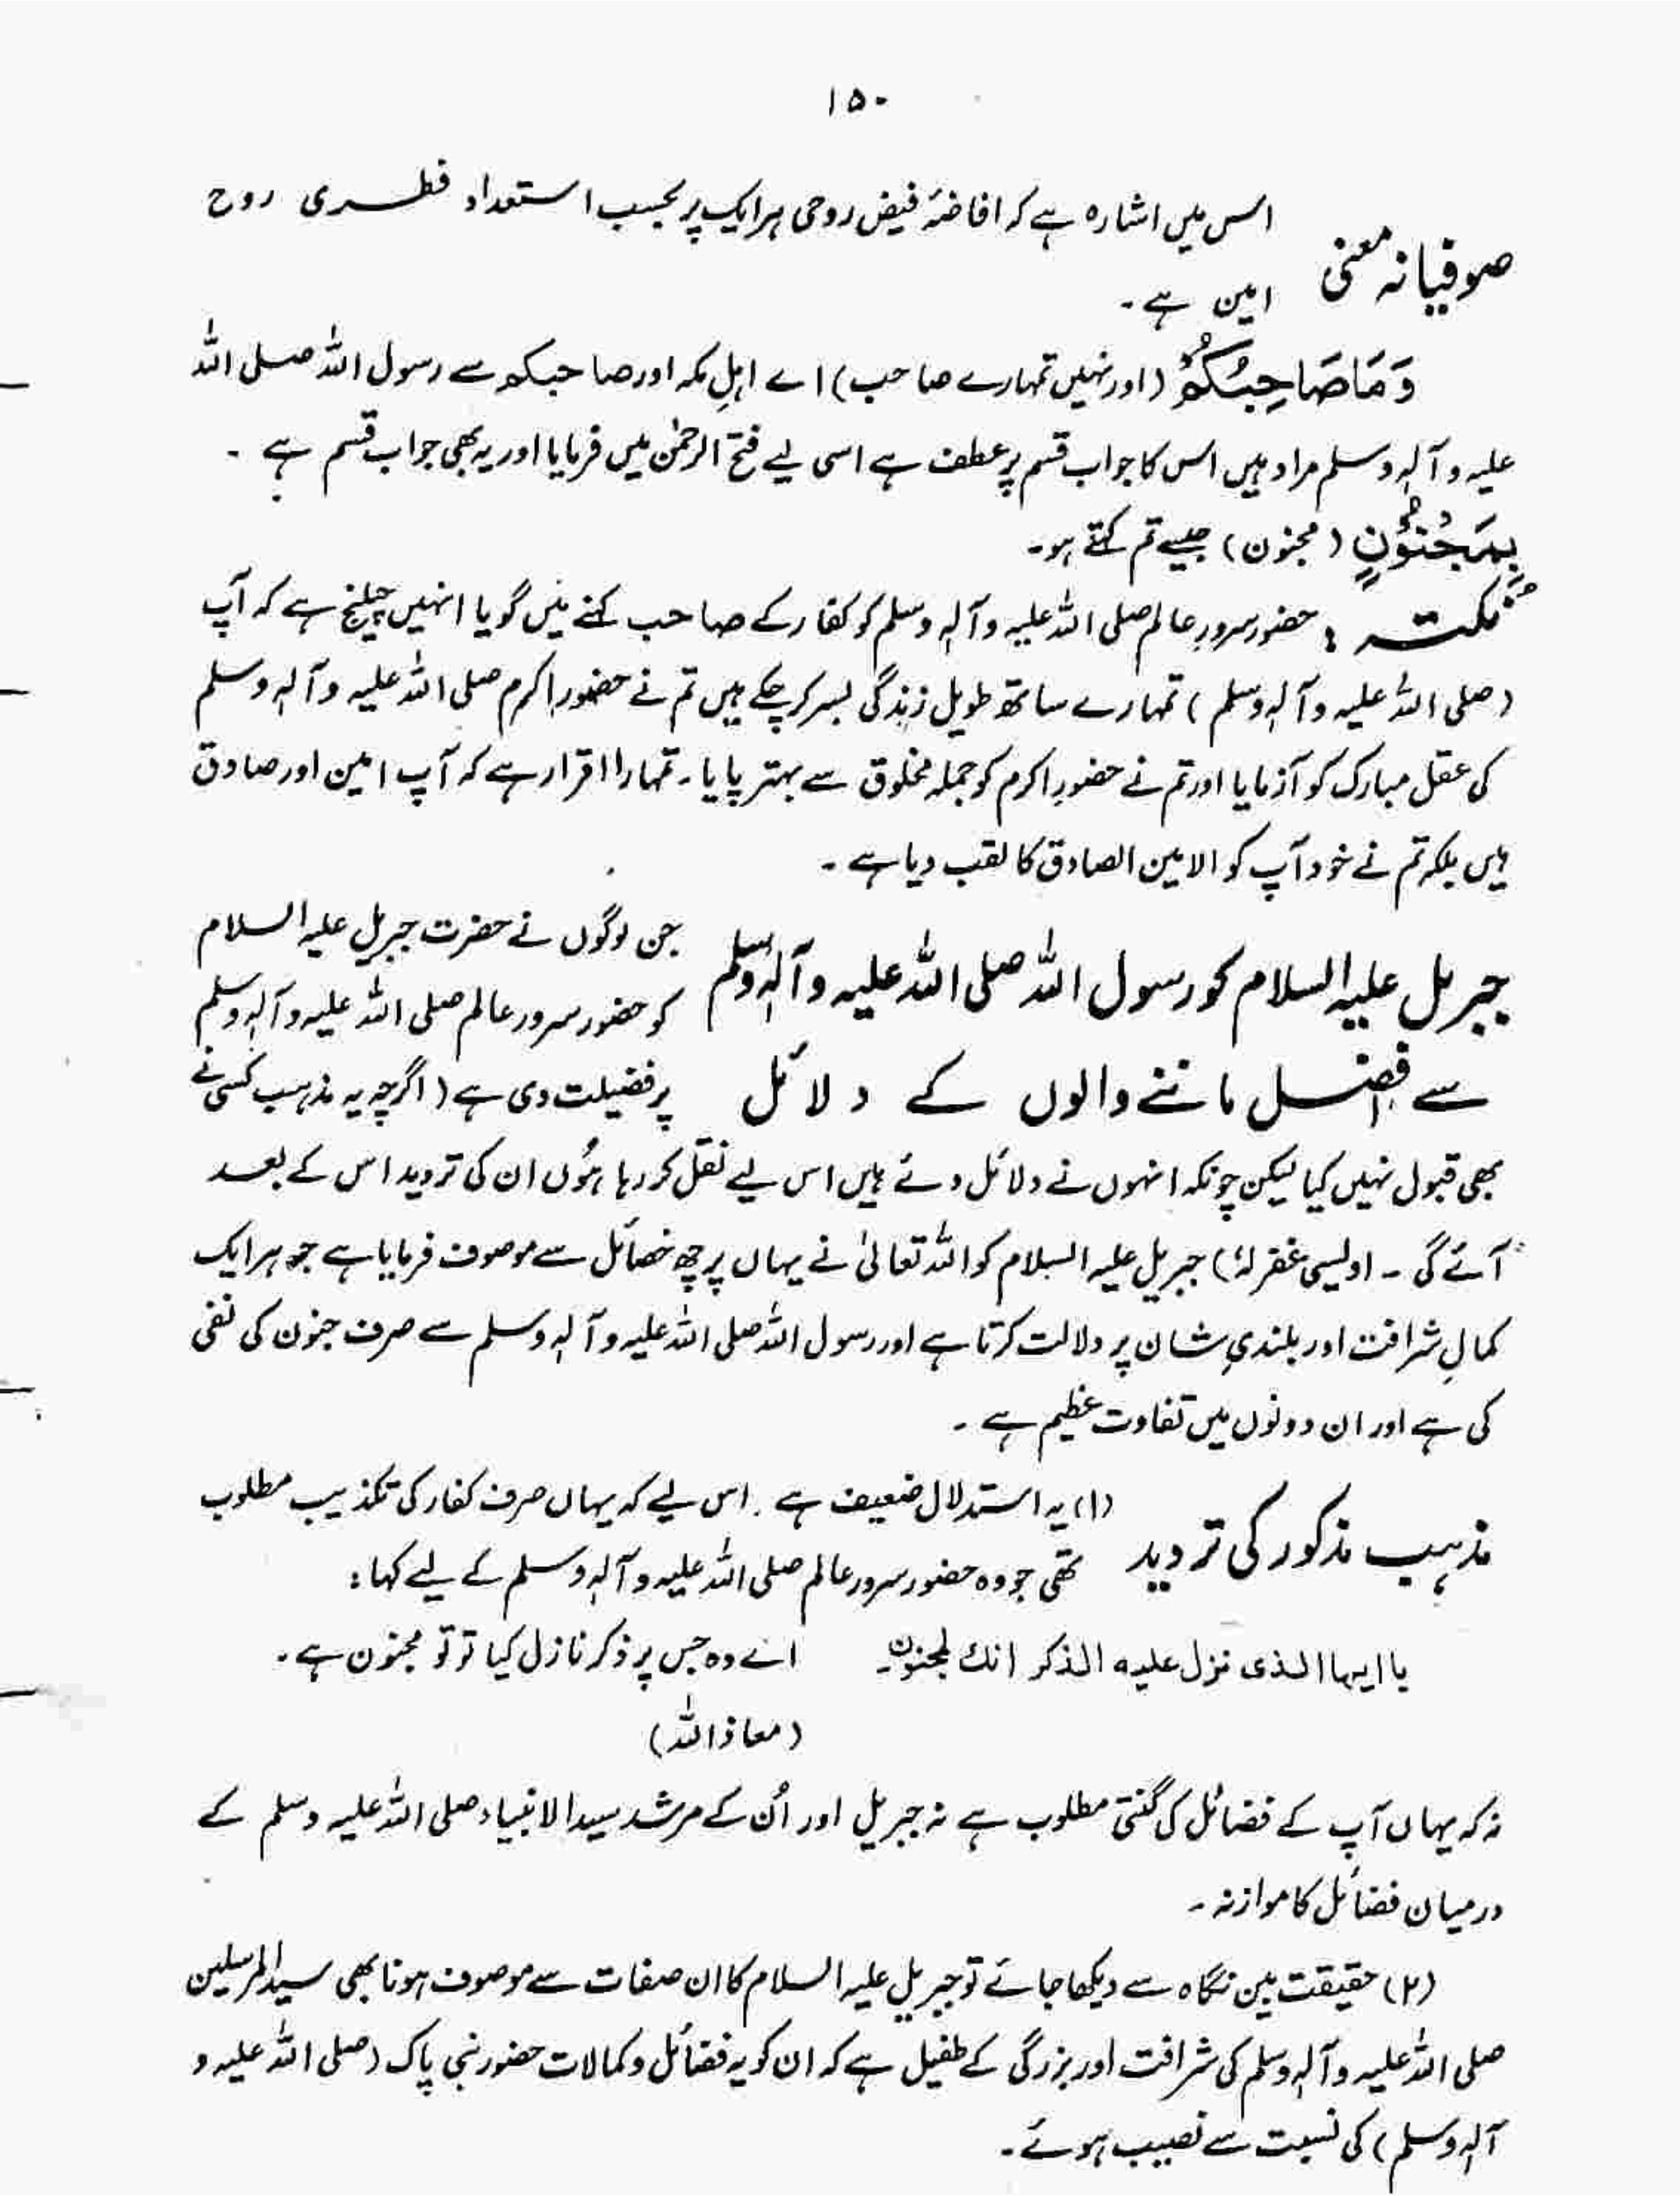 ۱۵۰
صوفیانہ معنی
اس میں اشارہ ہے کہ افاضۂ فیض روحی ہر ایک پر بحسب استعداد فطری روح
امین ہے۔
وَمَا صَاحِبُكُمْ (اور نہیں تمہارے صاحب) اے اہلِ مکہ اور صاحبکم سے رسول اللہ صلی اللہ
علیہ وآلہٖ وسلم مراد ہیں اس کا جواب قسم پر عطف ہے اسی لیے فتح الرحمٰن میں فرمایا اور یہ بھی جواب قسم ہے ۔
بِمَجْنُوْنٍ (مجنون) جیسے تم کہتے ہو۔
نکتہ : حضور سرورِ عالم صلی اللہ علیہ وآلہٖ وسلم کو کفار کے صاحب کہنے میں گویا انہیں چیلنج ہے کہ آپ
(صلی اللہ علیہ وآلہٖ وسلم) تمہارے ساتھ طویل زندگی بسر کر چکے ہیں تم نے حضور اکرم صلی اللہ علیہ وآلہٖ وسلم
کی عقل مبارک کو آزمایا اور تم نے حضورِ اکرم کو جملہ مخلوق سے بہتر پایا۔ تمہارا اقرار ہے کہ آپ امین اور صادق
ہیں بلکہ تم نے خود آپ کو الامین الصادق کا لقب دیا ہے ۔
جبریل علیہ السلام کو رسول اللہ صلی اللہ علیہ وآلہٖ وسلم
سے افضل ماننے والوں کے دلائل
جن لوگوں نے حضرت جبریل علیہ السلام
کو حضور سرور عالم صلی اللہ علیہ وآلہٖ وسلم
پر فضیلت دی ہے (اگرچہ یہ مذہب کسی نے
بھی قبول نہیں کیا لیکن چونکہ انہوں نے دلائل دئے ہیں اس لیے نقل کر رہا ہُوں ان کی تردید اس کے بعد
آئے گی ۔ اویسی غفرلہٗ) جبریل علیہ السلام کو اللہ تعالیٰ نے یہاں پر چھ خصائل سے موصوف فرمایا ہے جو ہر ایک
کمالِ شرافت اور بلندیِ شان پر دلالت کرتا ہے اور رسول اللہ صلی اللہ علیہ وآلہٖ وسلم سے صرف جنون کی نفی
کی ہے اور ان دونوں میں تفاوت عظیم ہے ۔
مذہب مذکور کی تردید
(۱) یہ استدلال ضعیف ہے . اس لیے کہ یہاں صرف کفار کی تکذیب مطلوب
تھی جو وہ حضور سرور عالم صلی اللہ علیہ وآلہٖ وسلم کے لیے کہا :
یا ایہا الذی نزل علیہ الذکر انک لمجنون۔
اے وہ جس پر ذکر نازل کیا تو تُو مجنون ہے۔
(معاذ اللہ)
نہ کہ یہاں آپ کے فضائل کی گنتی مطلوب ہے نہ جبریل اور اُن کے مرشد سید الانبیاء صلی اللہ علیہ وسلم کے
درمیان فضائل کا موازنہ ۔
(۲) حقیقت بین نگاہ سے دیکھا جائے تو جبریل علیہ السلام کا ان صفات سے موصوف ہونا بھی سید المرسلین
صلی اللہ علیہ وآلہٖ وسلم کی شرافت اور بزرگی کے طفیل ہے کہ ان کو یہ فضائل و کمالات حضور نبی پاک (صلی اللہ علیہ و
آلہٖ وسلم) کی نسبت سے نصیب ہوئے۔